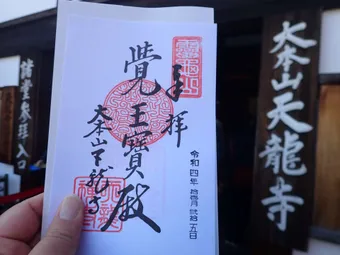 大本山天龍寺
諸堂参拝入口
奉拝
覺王寶殿
大本山天龍寺
令和四年